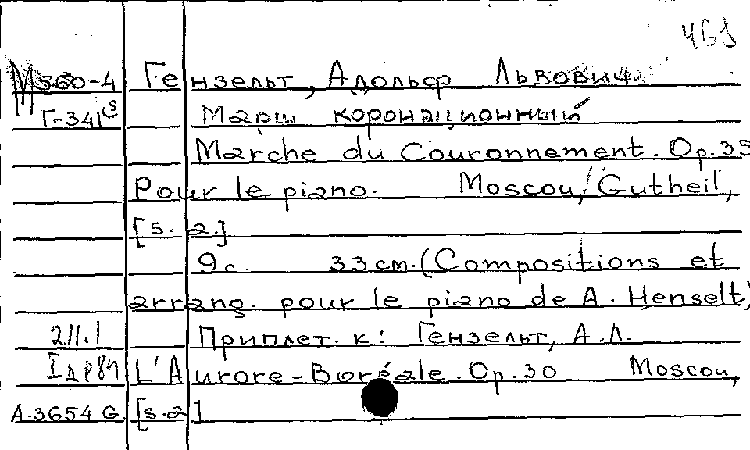 461
М560-4 Гензельт, Адольф Львович.
Г-341 Марш коронационный
Marche du Couronnement. Op.35
Pour le piano. Moscou, Gutheil,
[s. a.]
9с. 33 cm. (Compositions et
arrang. pour le piano de A. Henselt)
2.11.1 Приплет. к: Гензельт, А.Л.
L'Aurore-Boréale. Op.30 Moscou,
A.3654 G. [s.a]